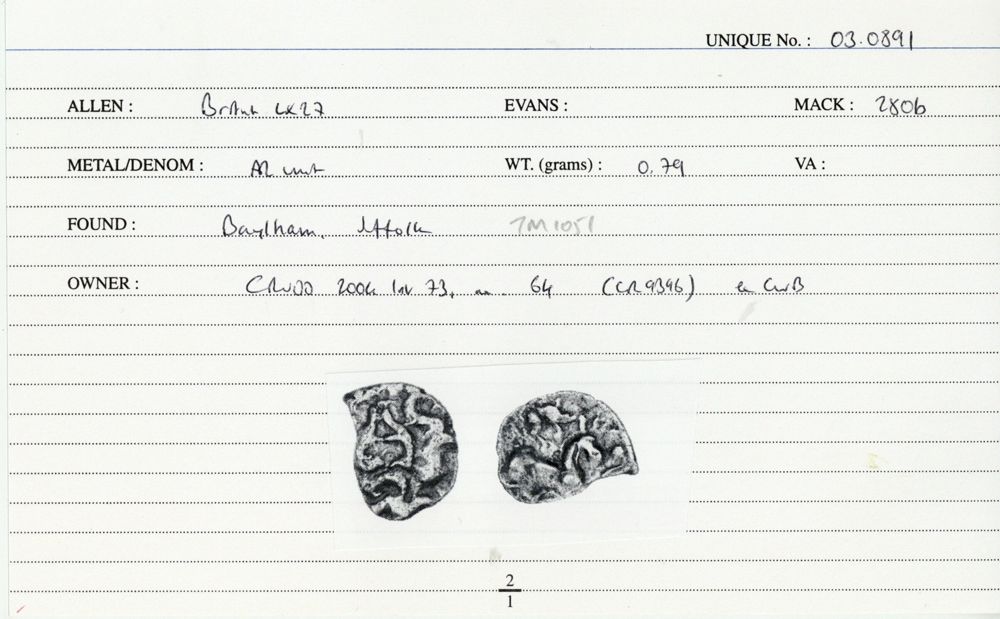 UNIQUE No. : 03.0891
ALLEN : British LX27 EVANS : MACK : 280b
METAL/DENOM : AR unit WT. (grams) : 0.79 VA :
FOUND : Baylham, Suffolk TM1051
OWNER : 73, 64 (CR 9396) ex
2
1